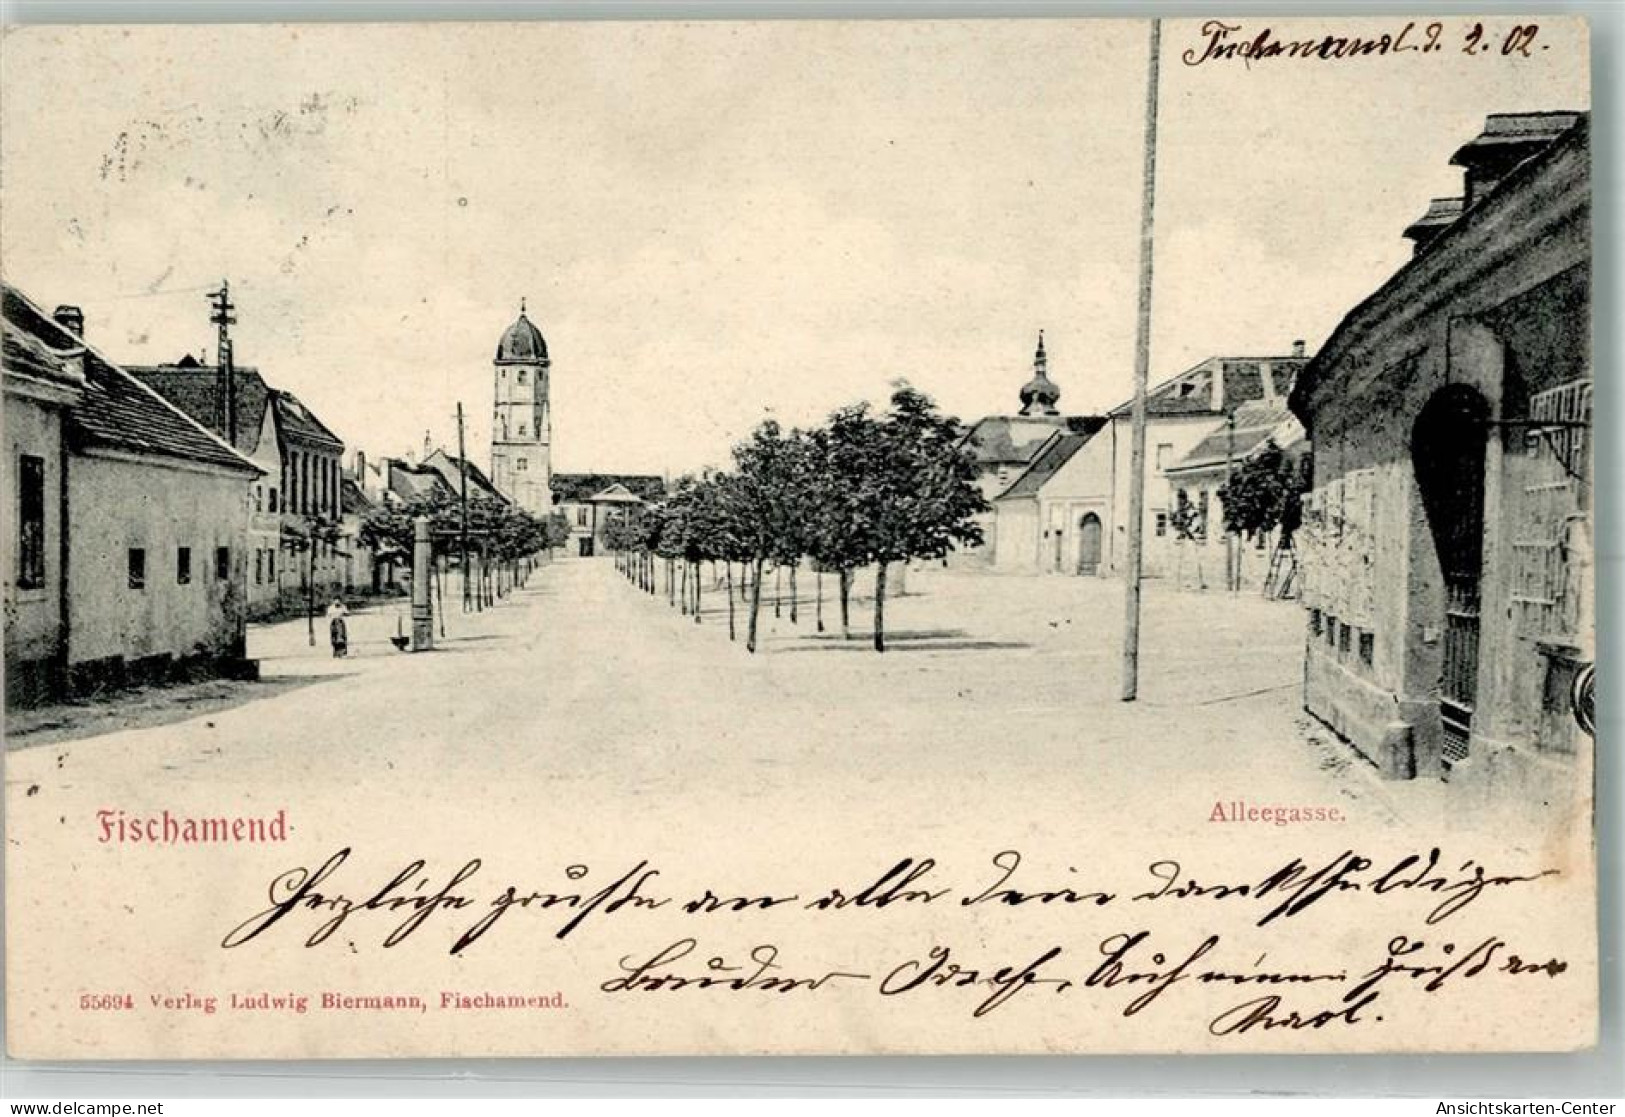 Fischamend d. 2. 02.
Fischamend
Alleegasse.
Herzliche grüße an alle dein dankschuldiger
Bruder Josef. Auch einen Gruß an
55694 Verlag Ludwig Biermann, Fischamend.
delcampe.net
Ansichtskarten-Center